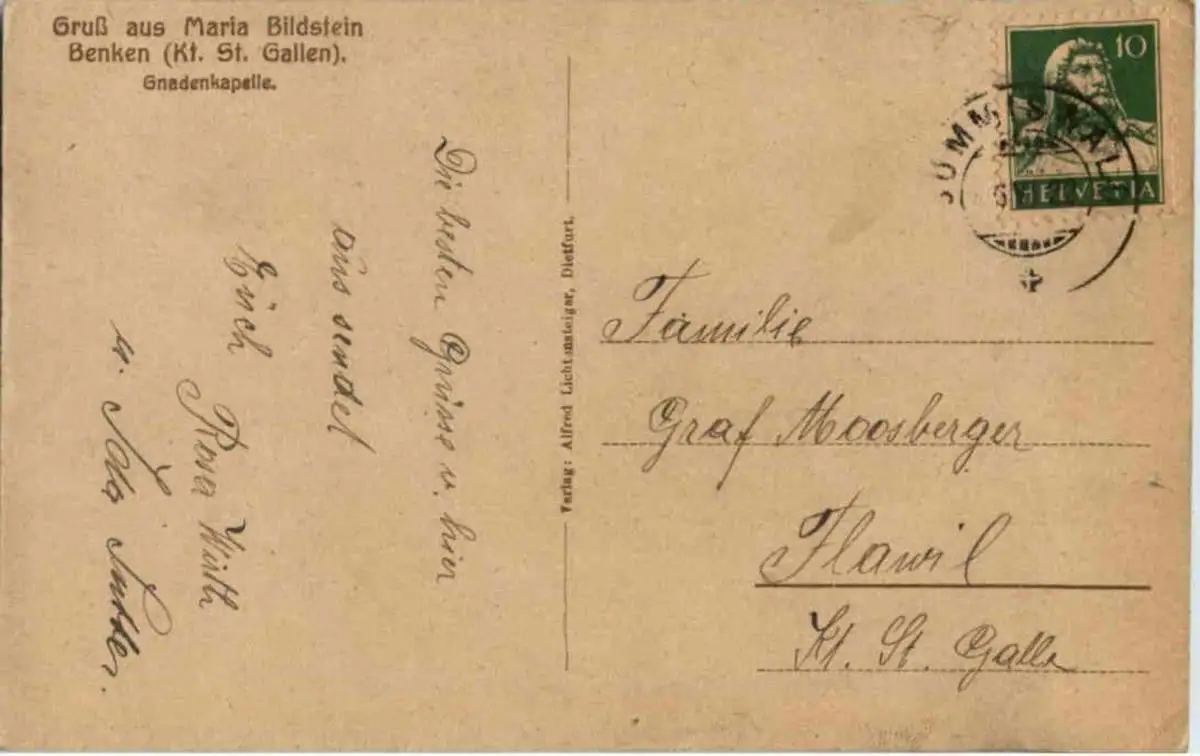 Gruß aus Maria Bildstein
Benken (Kt. St. Gallen).
Gnadenkapelle.
Die besten Grüsse v. hier
aus sendet
Euch
Rosa Wirth
u. Ida
Verlag: Alfred Lichtensteiger, Dietfurt.
10
HELVETIA
SOMMISWALD
Familie
Graf Moosberger
Flawil
Kt. St. Galle